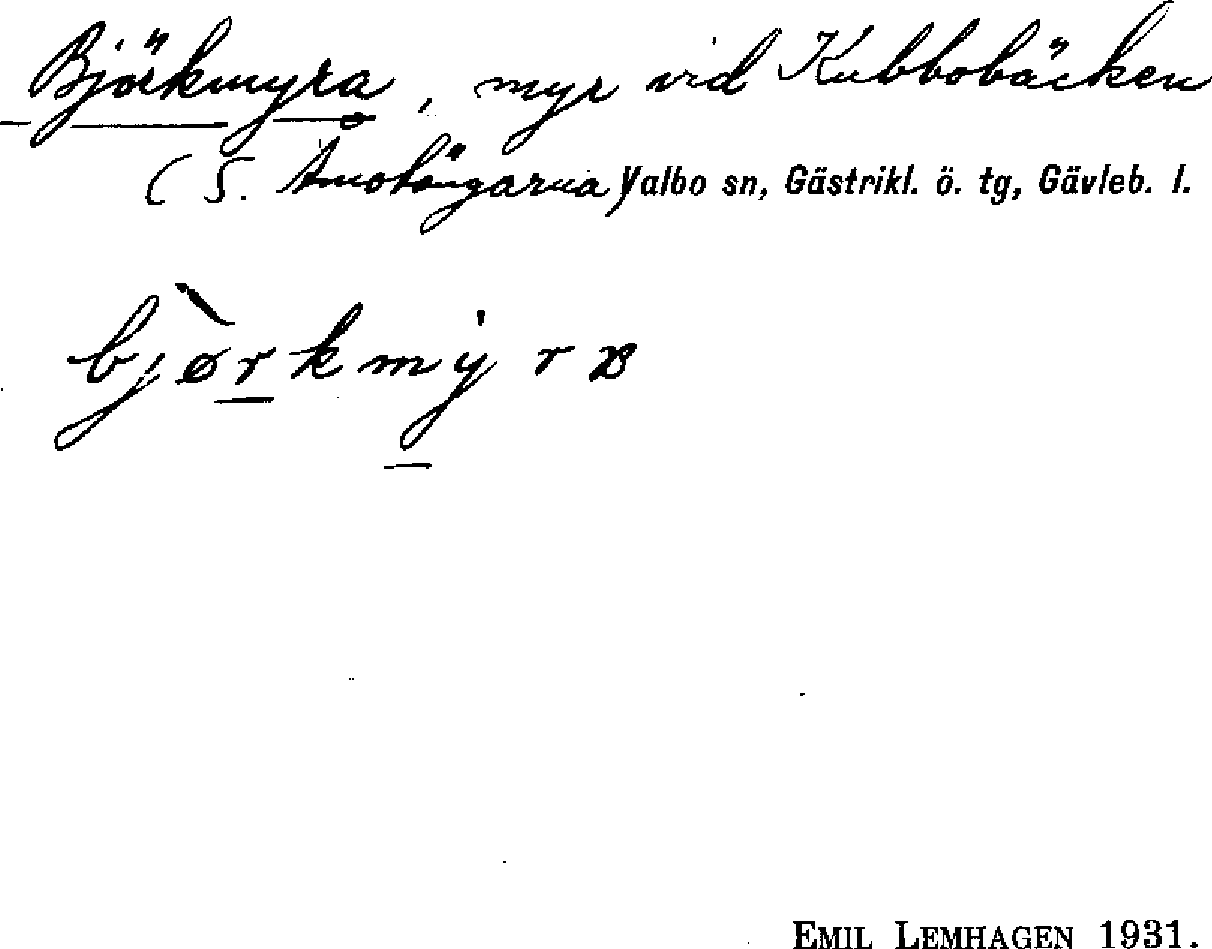 Björkmyra, myr vid Kubbobäcken
(S. Åmotängarna) Valbo sn, Gästrikl. ö. tg, Gävleb. l.
bjørkmyrɐ
EMIL LEMHAGEN 1931.